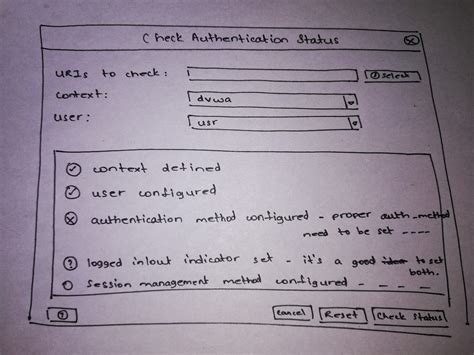 Check Authentication Status
URIs to check: select
context: dvwa
user: usr
context defined
user configured
authentication method configured - proper auth-method
need to be set ----
? logged in/out indicator set - it's a good idea to set
both.
session management method configured - - - -
? cancel Reset Check Status